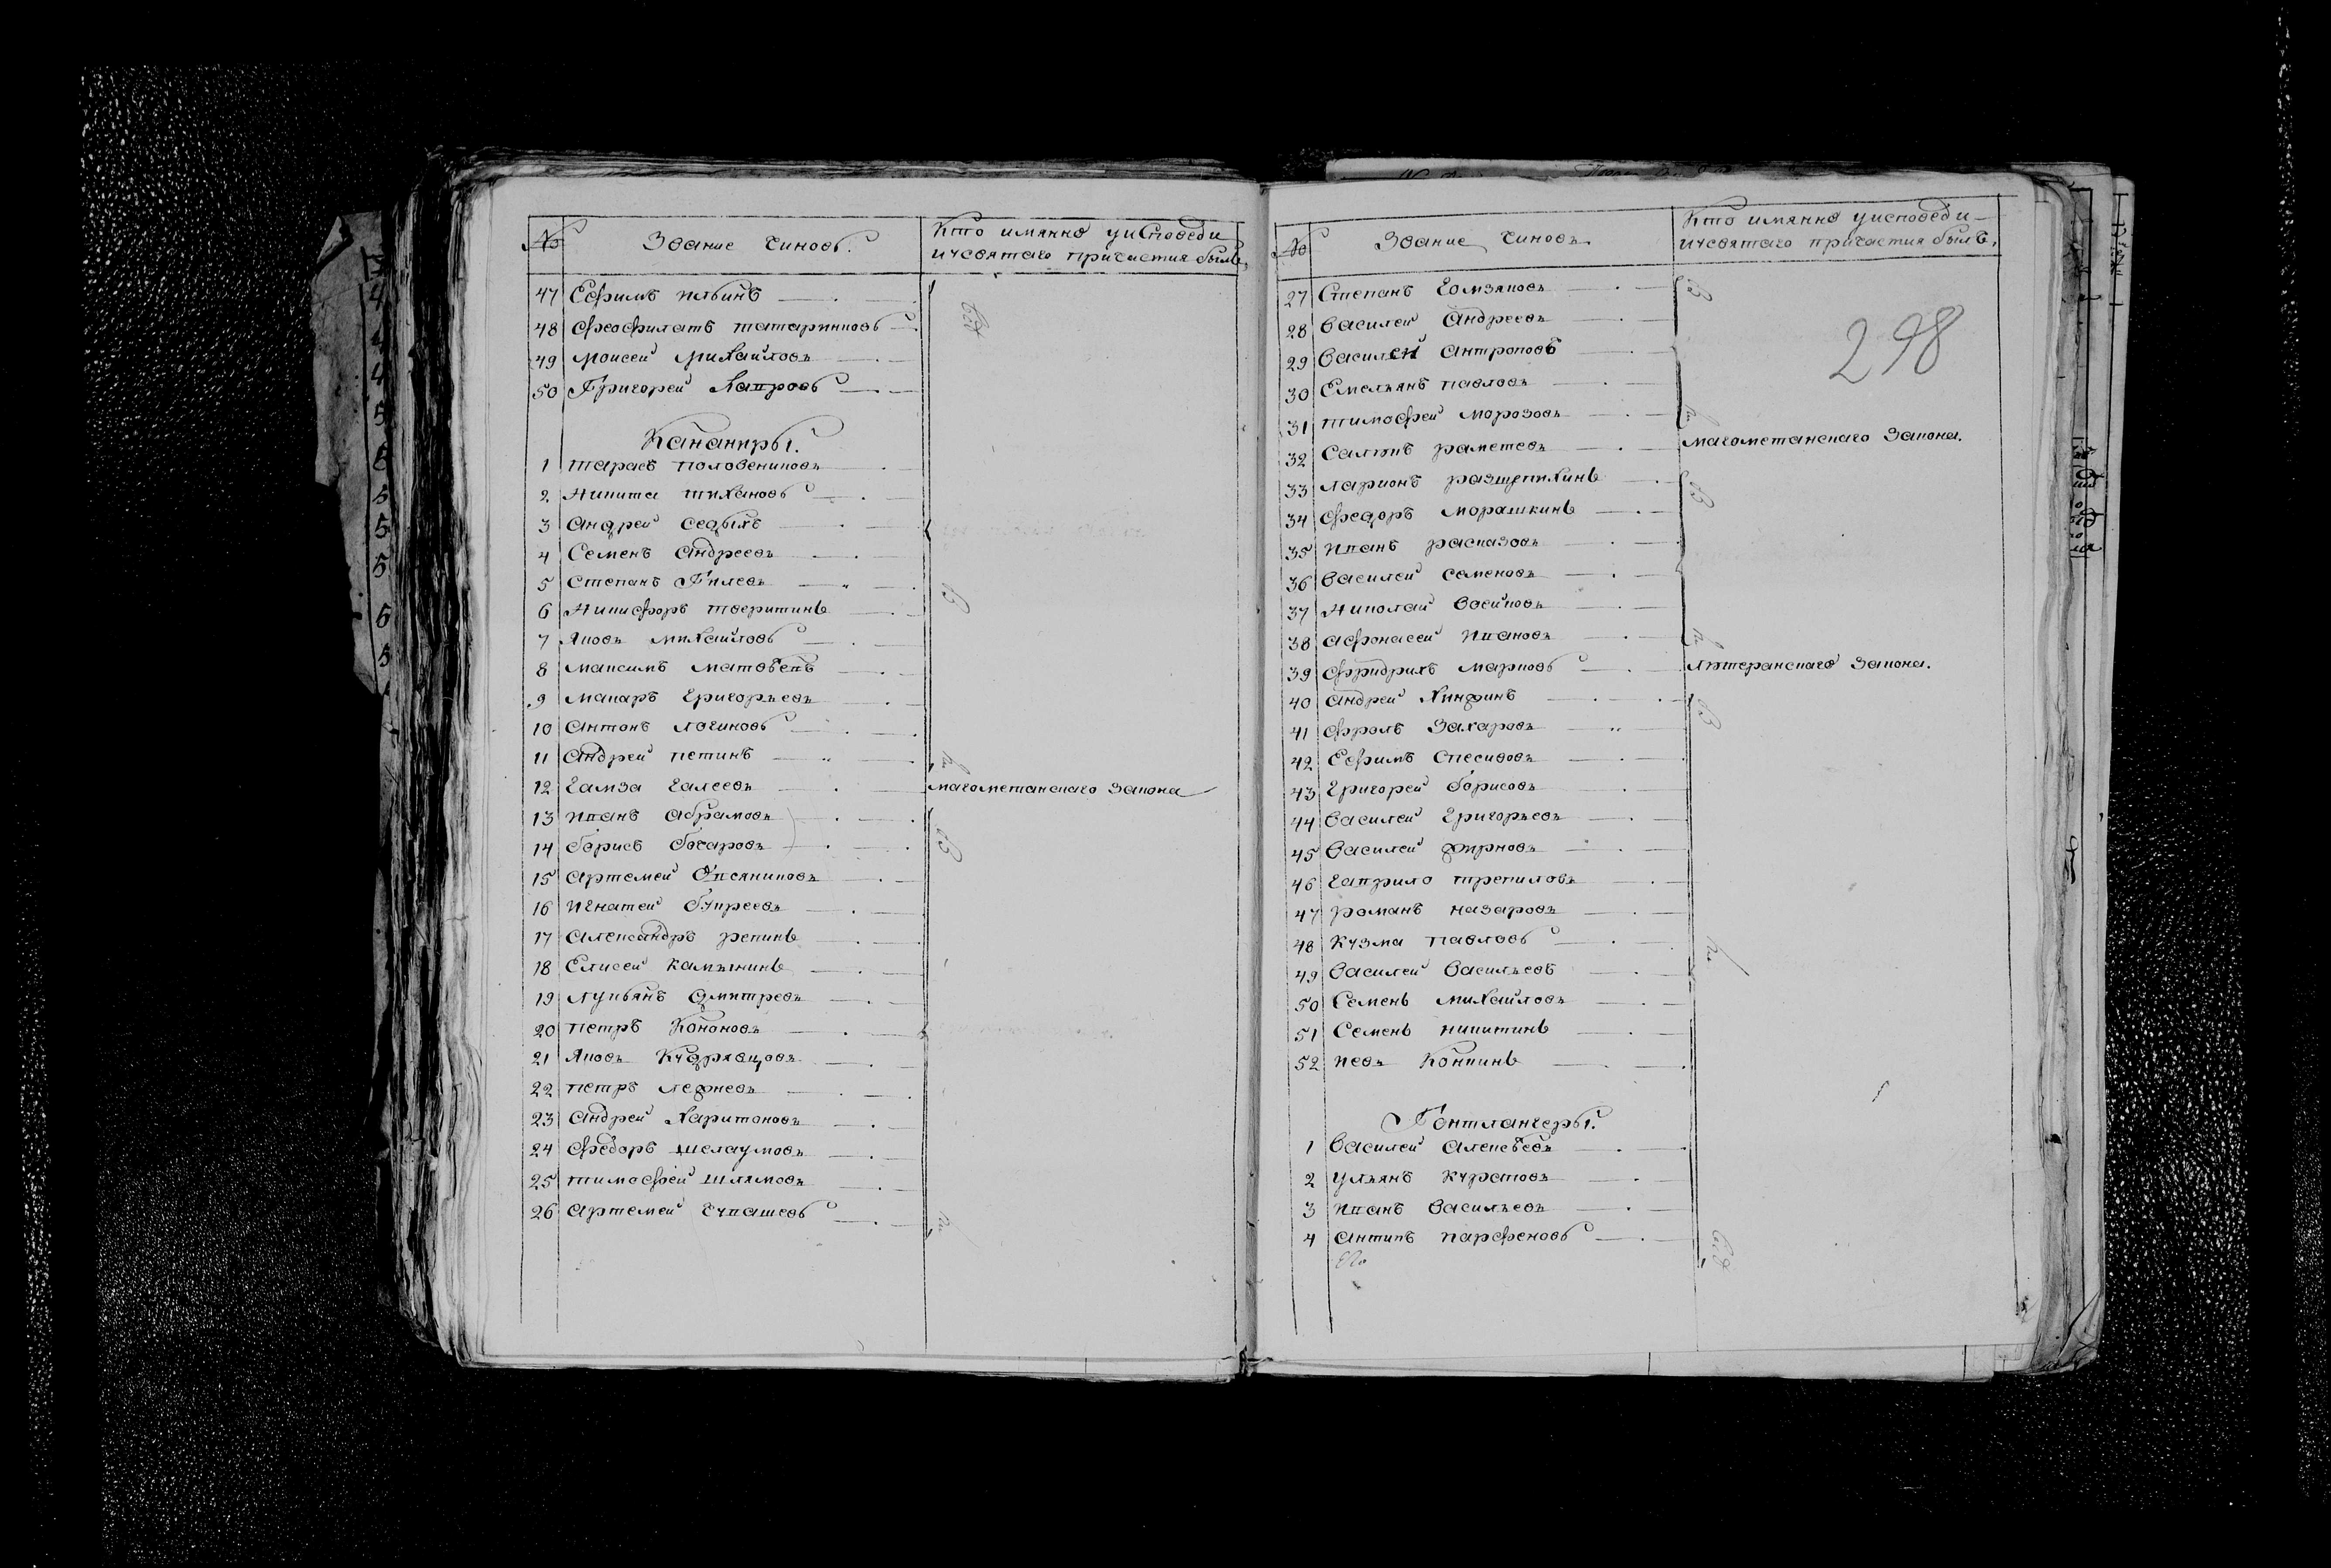 № Звание чиновъ. Кто имянно уисповеди
исвятаго причастия былъ.
47 Ефимъ Ильинъ
48 Феофилатъ Татариновъ
49 Моисей Михайловъ
50 Григорей Лавровъ
Кананиры.
1 Тарасъ Половениковъ
2 Никита Тихановъ
3 Андрей Седыхъ
4 Семенъ Андреевъ
5 Степанъ Гилевъ
6 Никифоръ Тверитинъ
7 Яковъ Михайловъ
8 Максимъ Матвѣевъ
9 Макаръ Григорьевъ
10 Антонъ Логиновъ
11 Андрей Петинъ
12 Гамза Галеевъ магометанскаго закона
13 Иванъ Абрамовъ
14 Борисъ Бочаровъ
15 Артемей Овсяниковъ
16 Игнатей Букреевъ
17 Александръ Репинъ
18 Елисей Камынинъ
19 Лукьянъ Дмитревъ
20 Петръ Кононовъ
21 Яковъ Кудрявцовъ
22 Петръ Ледневъ
23 Андрей Харитоновъ
24 Федоръ Шелаумовъ
25 Тимофей Шлямовъ
26 Артемей Чупашевъ
№ Звание чиновъ. Кто имянно уисповеди
исвятаго причастия былъ.
27 Степанъ Гомзяковъ
298
28 Василей Андреевъ
29 Василей Антроповъ
30 Емельянъ Павловъ
31 Тимофей Морозовъ
32 Раметевъ магометанскаго закона.
33 Ларионъ Разщепихинъ
34 Федоръ Морашкинъ
35 Иванъ Расказовъ
36 Василей Семеновъ
37 Николай Осиповъ
38 Афонасей Ивановъ
39 Фридрихъ Марковъ Лютеранскаго закона.
40 Андрей
41 Фролъ Захаровъ
42 Ефимъ Спесивовъ
43 Григорей Борисовъ
44 Василей Григорьевъ
45 Василей
46 Гаврило Трепиловъ
47 Романъ Назаровъ
48 Кузма Павловъ
49 Василей Васильевъ
50 Семенъ Михайловъ
51 Семенъ Никитинъ
52 Иевъ Конкинъ
Гонтлангеры.
1 Василей Алексѣевъ
2 Ульянъ Куратовъ
3 Иванъ Васильевъ
4 Антипъ Парфеновъ